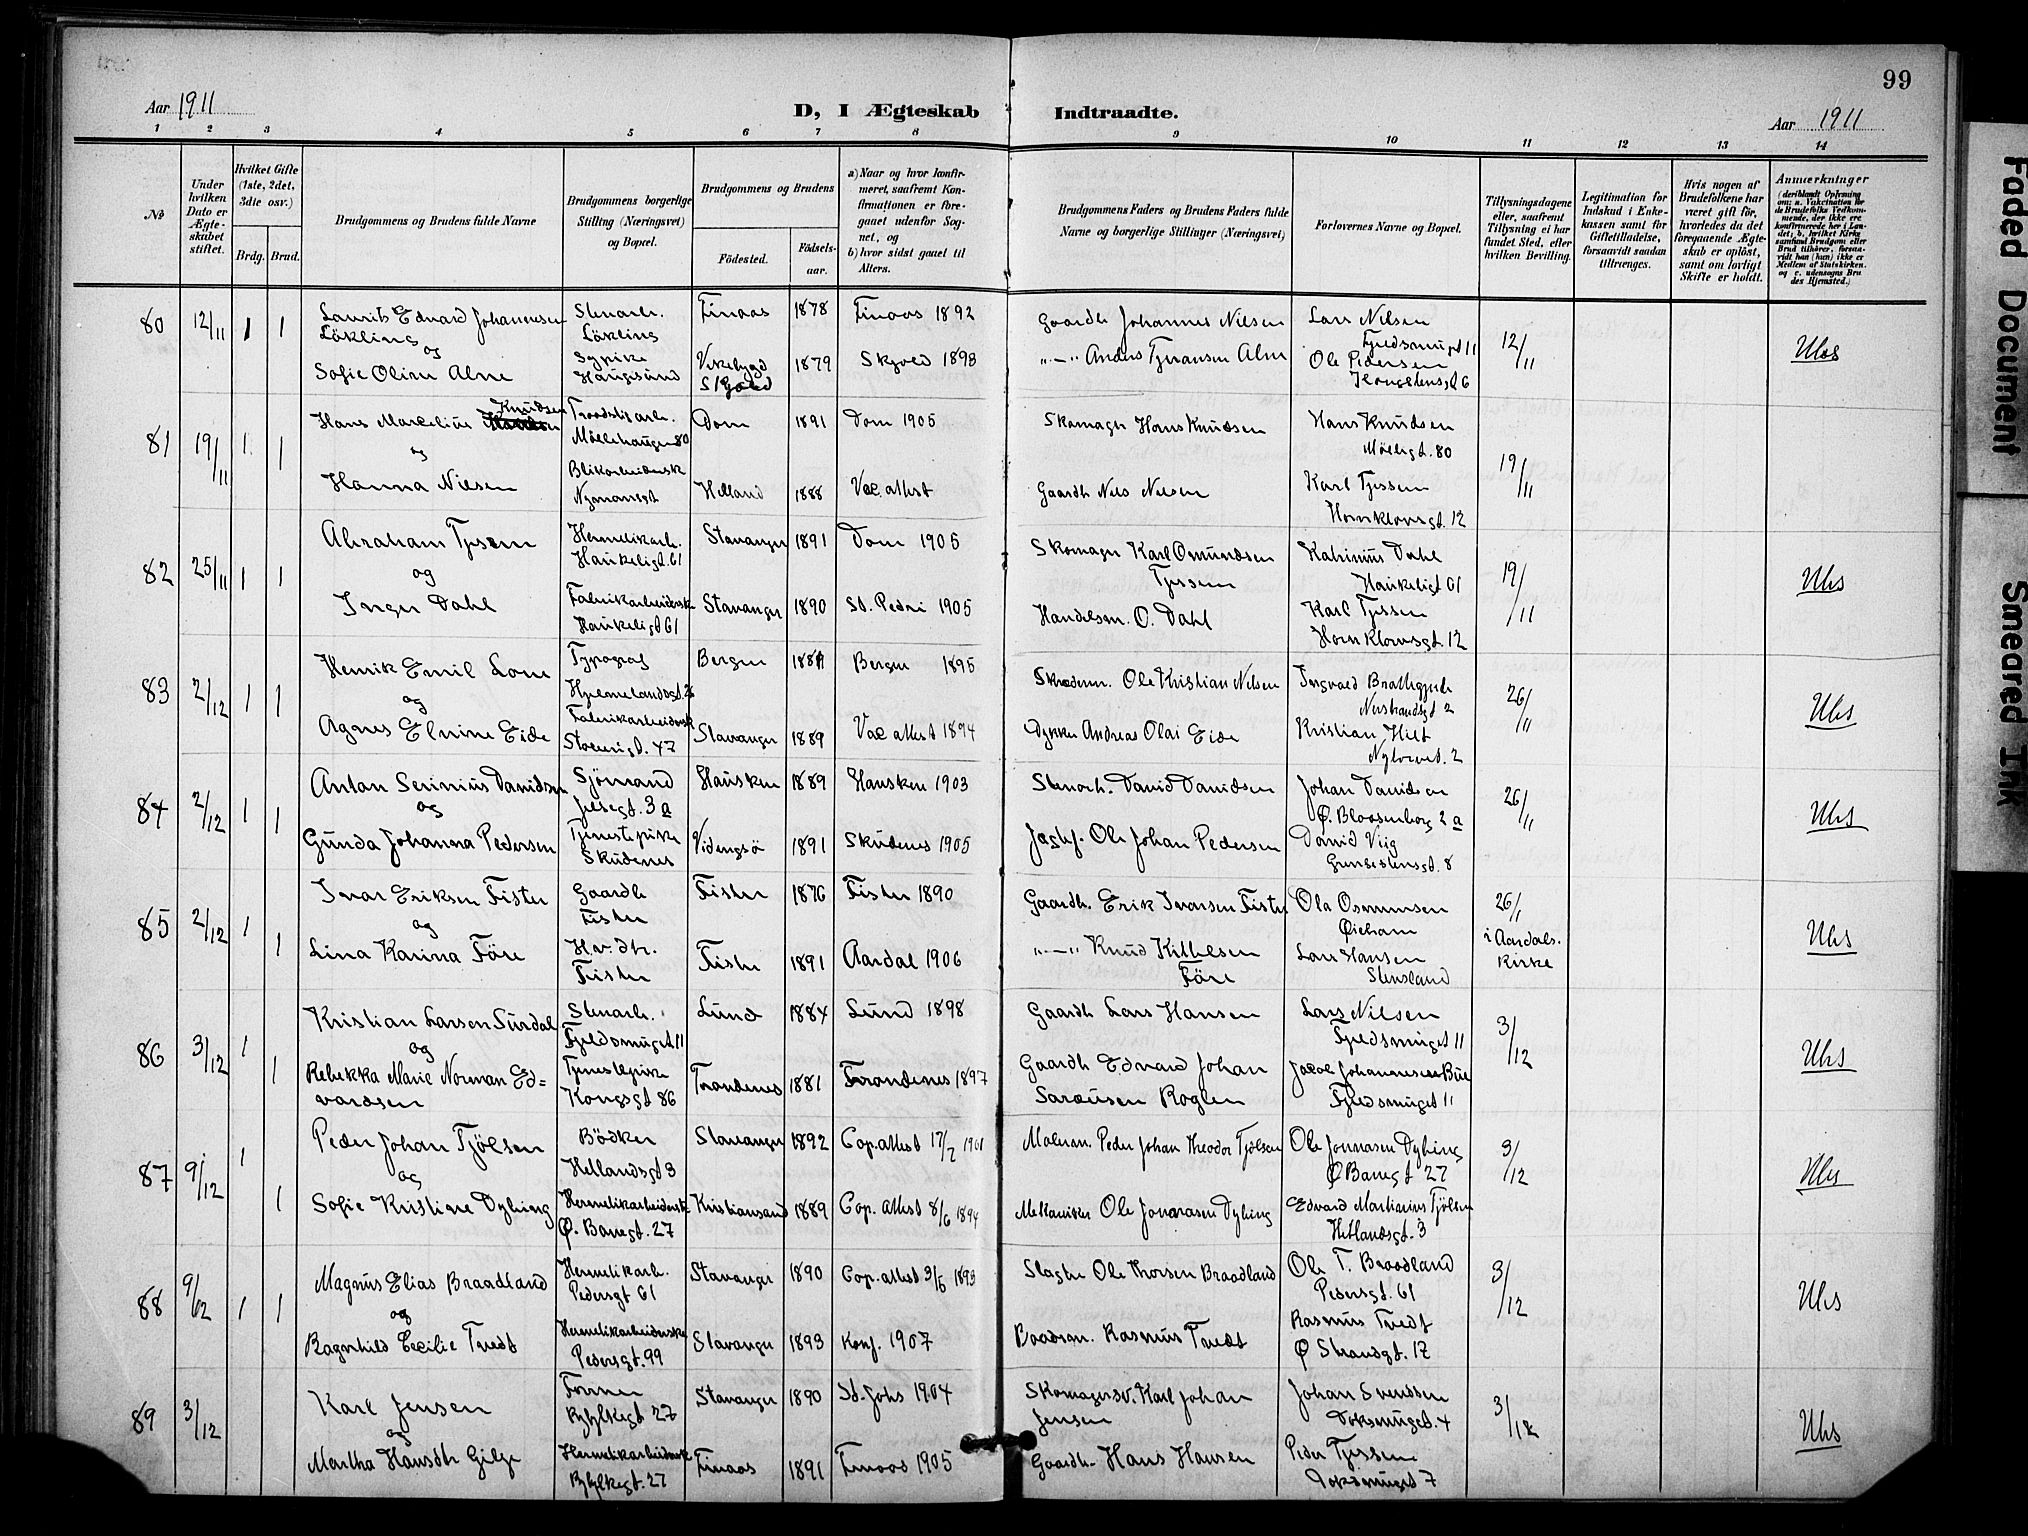 99
Aar 1911
D, I Ægteskab Indtraadte.
Aar 1911
1 2 3 4 5 6 7 8 9 10 11 12 13 14
No
Under hvilken Dato er Ægteskabet stiftet.
Hvilket Gifte (1ste, 2det, 3die osv.)
Brdg. Brud.
Brudgommens og Brudens fulde Navne
Brudgommens borgerlige Stilling (Næringsvei) og Bopæl.
Brudgommens og Brudens
Födested.
Födsels-aar.
a) Naar og hvor konfirmeret, saafremt Konfirmationen er foregaaet udenfor Sognet, og
b) hvor sidst gaaet til Alters.
Brudgommens Faders og Brudens Faders fulde Navne og borgerlige Stillinger (Næringsvei)
Forlovernes Navne og Bopæl.
Tillysningsdagene eller, saafremt Tillysning ei har fundet Sted, efter hvilken Bevilling.
Legitimation for Indskud i Enkekassen samt for Giftetilladelse, forsaavidt saadan tiltrænges.
Hvis nogen af Brudefolkene har været gift för, hvorledes da det foregaaende Ægteskab er oplöst, samt om lovligt Skifte er holdt.
Anmærkninger
80 12/11 1 1
Laurits Edvard Johannesen Løkling
og
Sofie Oline Alne
Stenarb. Løkling
Sypike Haugesund
Finaas 1878 Finaas 1892
Vikebygd Skjold 1879 Skjold 1898
Gaardb Johannes Nilsen
"-" Anders Tjeransen Alne
Lars Nilsen
Fjeldsmuget 11
Ole Pedersen
Kongstensgt 6
12/11
Uhs
81 19/11 1 1
Hans Markelius Knudsen
og
Hanna Nilsen
Møllehaugen 80
Blikarbeiderske
Dom 1891 Dom 1905
Helland 1888 Vac. attest
Skomager Hans Knudsen
Gaardb Nils Nilsen
Hans Knudsen
Møllegt. 80
Karl Tjessem
Hornklovsgt. 12
19/11
82 25/11 1 1
Abraham Tjessem
og
Inger Dahl
Hermetikarb.
Haukeligt. 61
Fabrikarbeiderske
Haukeligt 61
Stavanger 1891 Dom 1905
Stavanger 1890 St. Petri 1905
Skomager Karl Osmundsen Tjessem
Handelsm. O. Dahl
Katrinus Dahl
Haukeligt 61
Karl Tjessem
Hornklovsgt. 12
19/11
Uhs
83 2/12 1 1
Henrik Emil Lone
og
Agnes Elvine Eide
Typograf
Hjelmelandsgt. 26
Fabrikarbeiderske
Støperigt. 47
Bergen 1881 Bergen 1895
Stavanger 1889 Vac attest 1894
Skræderm. Ole Kristian Nilsen
Dykker Andreas Olai Eide
Ingvald Brattegjerde
Nerstrandsgt 2
Kristian Hilt
Nytorvet. 2
26/11
Uhs
84 2/12 1 1
Anton Serinius Davidsen
og
Gunda Johanna Pedersen
Sjømand
Jelsegt. 3a
Tjenestepike
Skudenes
Hausken 1889 Hausken 1903
Videngsø 1891 Skudenes 1905
Stenarb. David Davidsen
Jægtsf. Ole Johan Pedersen
Johan Davidsen
Ø. Blaasenborg 2a
David Viig
26/11
Uhs
85 2/12 1 1
Ivar Eriksen Fister
og
Lina Karina Føre
Gaardb
Fister
H.v.dtr.
Fister
Fister 1876 Fister 1890
Fister 1891 Aardal 1906
Gaardb. Erik Ivarsen Fister
"-" Knud Kittelsen Føre
Ola Osmunsen
Øieham
Lars Hansen
Stensland
26/
i Aardals. Kirke
Uhs
86 3/12 1 1
Kristian Larsen Surdal
og
Rebekka Marie Norman Ed=
vardsen
Stenarb.
Fjeldsmuget 11
Tjenestepike
Kongsgt 86
Lund 1884 Lund 1898
Trondenes 1881 Trondenes 1897
Gaardb Lars Hansen
Gaardb Edvard Johan
Lars Nilsen
Fjeldsmuget 11
Jacob Johannesen Bue
Fjeldsmuget 11
3/12
Uhs
87 9/12 1 1
Peder Johan Tjølsen
og
Sofie Kristine Dybing
Bødker
Hetlandsgt 3
Hermetikarbeiderske
Ø. Banegt. 27
Stavanger 1892 Cop. attest 17/2 1901
Kristiansand 1889 Cop. attest 8/6 1894
Malerm. Peder Johan Theodor Tjølsen
Mekaniker Ole Jonnasen Dybing
Ole Jonnasen Dybing
Ø Banegt 27
Edvard Martinius Tjølsen
Hetlandsgt. 3
3/12
Uhs
88 9/12 1 1
Magnus Elias Braadland
og
Ragnhild Cecilie Tvedt
Hermetikarb.
Pedersgt 61
Hermetikarbeiderske
Pedersgt. 99
Stavanger 1890 Cop. attest 3/5 1893
Stavanger 1893 Konf. 1907
Slagter Ole Thorsen Braadland
Baadsm. Rasmus Tvedt
Ole T. Braadland
Pedersgt. 61
Rasmus Tvedt
Ø Strandgt. 12
3/12
Uhs
89 3/12
Karl Jensen
og
Martha Hansdtr Gilje
Former
Ryfylkegt 27
Hermetikarbeiderske
Ryfylkegt. 27
Stavanger 1890 St. Johs 1904
Finaas 1891 Finaas 1905
Skomagersv. Karl Johan
Jensen
Gaardb. Hans Hansen
Johan Svendsen
Peder Tjessem
3/12
Uhs
Faded Document
Smeared Ink